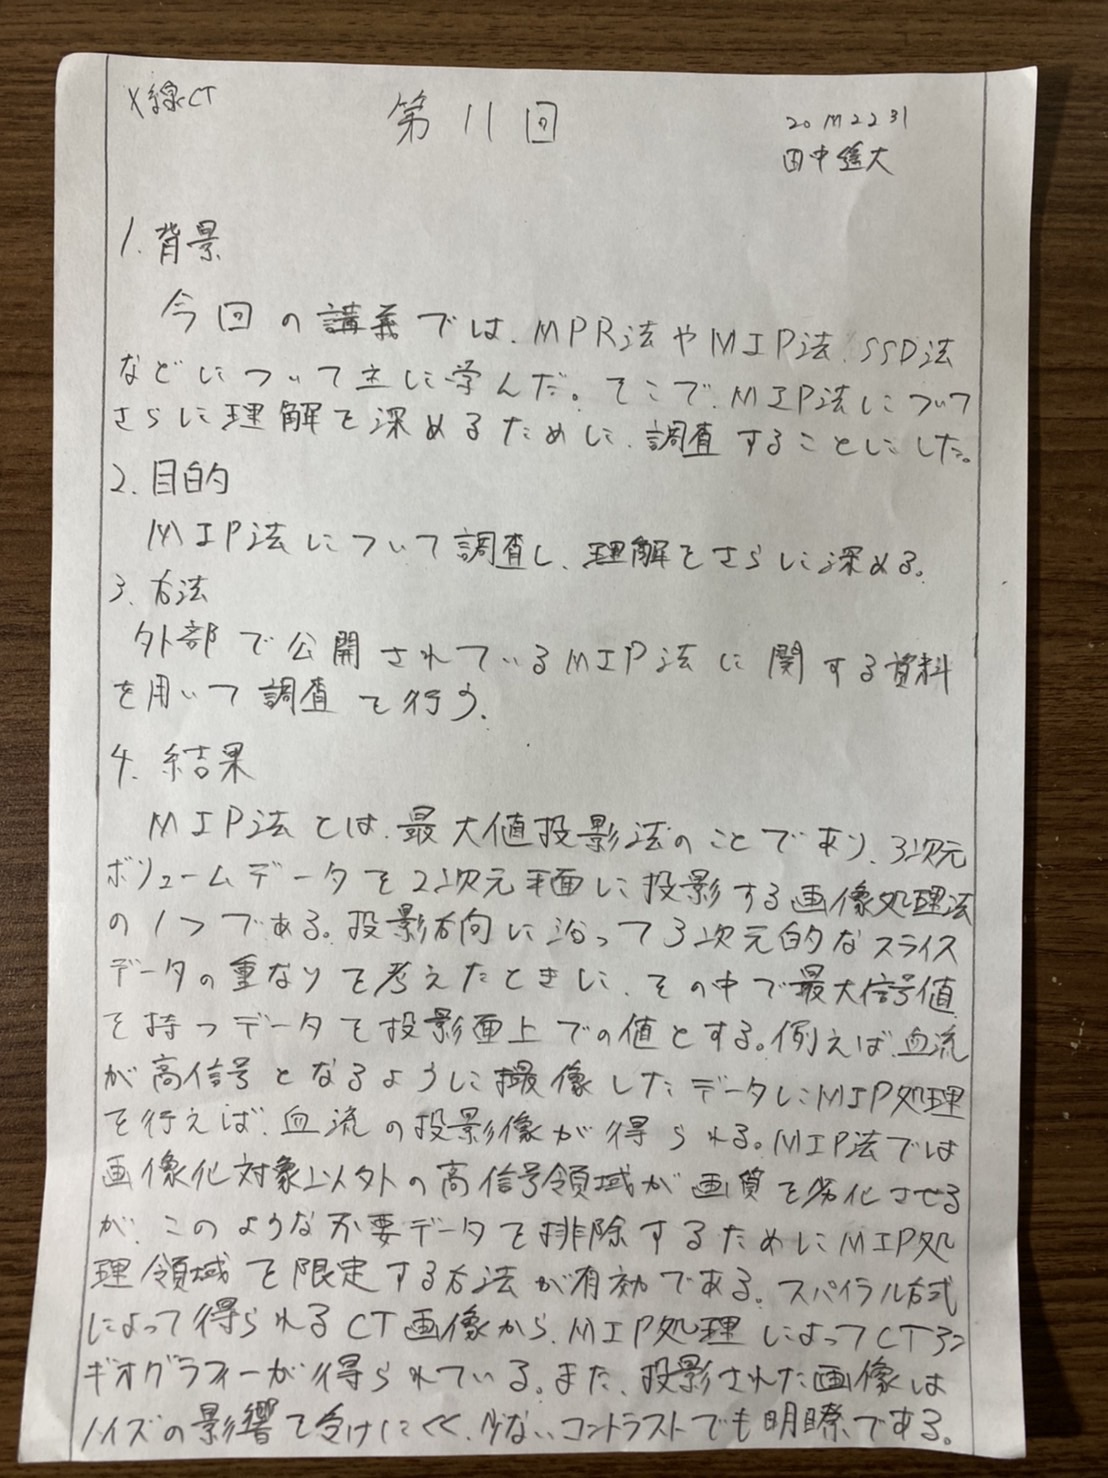 X線CT
第11回
20M2231
田中 大
1. 背景
今回の講義では、MPR法やMIP法、SSD法
などについて主に学んだ。そこで、MIP法について
さらに理解を深めるために、調査することにした。
2. 目的
MIP法について調査し、理解をさらに深める。
3. 方法
外部で公開されているMIP法に関する資料
を用いて調査を行う。
4. 結果
MIP法とは、最大値投影法のことであり、3次元
ボリュームデータを2次元平面に投影する画像処理法
の1つである。投影方向に沿って3次元的なスライス
データの重なりを考えたときに、その中で最大信号値
を持つデータを投影面上での値とする。例えば、血流
が高信号となるように撮像したデータにMIP処理
を行えば、血流の投影像が得られる。MIP法では
画像化対象以外の高信号領域が画質を劣化させる
が、このような不要データを排除するためにMIP処
理領域を限定する方法が有効である。スパイラル方式
によって得られるCT画像から、MIP処理によってCTアン
ギオグラフィーが得られている。また、投影された画像は
ノイズの影響を受けにくく、少ないコントラストでも明瞭である。